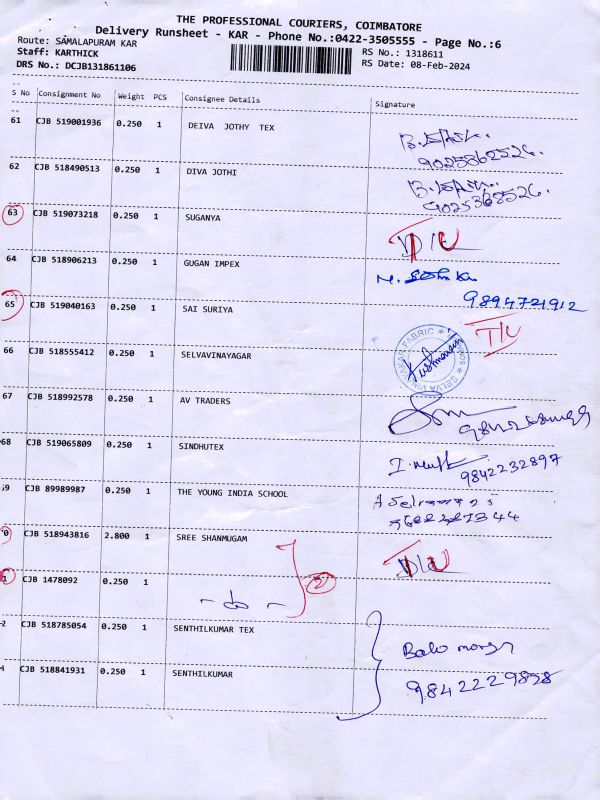 THE PROFESSIONAL COURIERS, COIMBATORE
Delivery Runsheet - KAR - Phone No.:0422-3505555 - Page No.:6
Route: SAMALAPURAM KAR
Staff: KARTHICK
DRS No.: DCJB131861106
RS No.: 1318611
RS Date: 08-Feb-2024
S No Consignment No Weight PCS Consignee Details Signature
61 CJB 519001936 0.250 1 DEIVA JOTHY TEX
9025862526.
62 CJB 518490513 0.250 1 DIVA JOTHI
9025368526.
63 CJB 519073218 0.250 1 SUGANYA
64 CJB 518906213 0.250 1 GUGAN IMPEX
9894721912
65 CJB 519040163 0.250 1 SAI SURIYA
T/U
66 CJB 518555412 0.250 1 SELVAVINAYAGAR
67 CJB 518992578 0.250 1 AV TRADERS
68 CJB 519065809 0.250 1 SINDHUTEX
9842232897
69 CJB 89989987 0.250 1 THE YOUNG INDIA SCHOOL
0 CJB 518943816 2.800 1 SREE SHANMUGAM
1 CJB 1478092 0.250 1 - do - 2
2 CJB 518785054 0.250 1 SENTHILKUMAR TEX
3 CJB 518841931 0.250 1 SENTHILKUMAR
9842229898